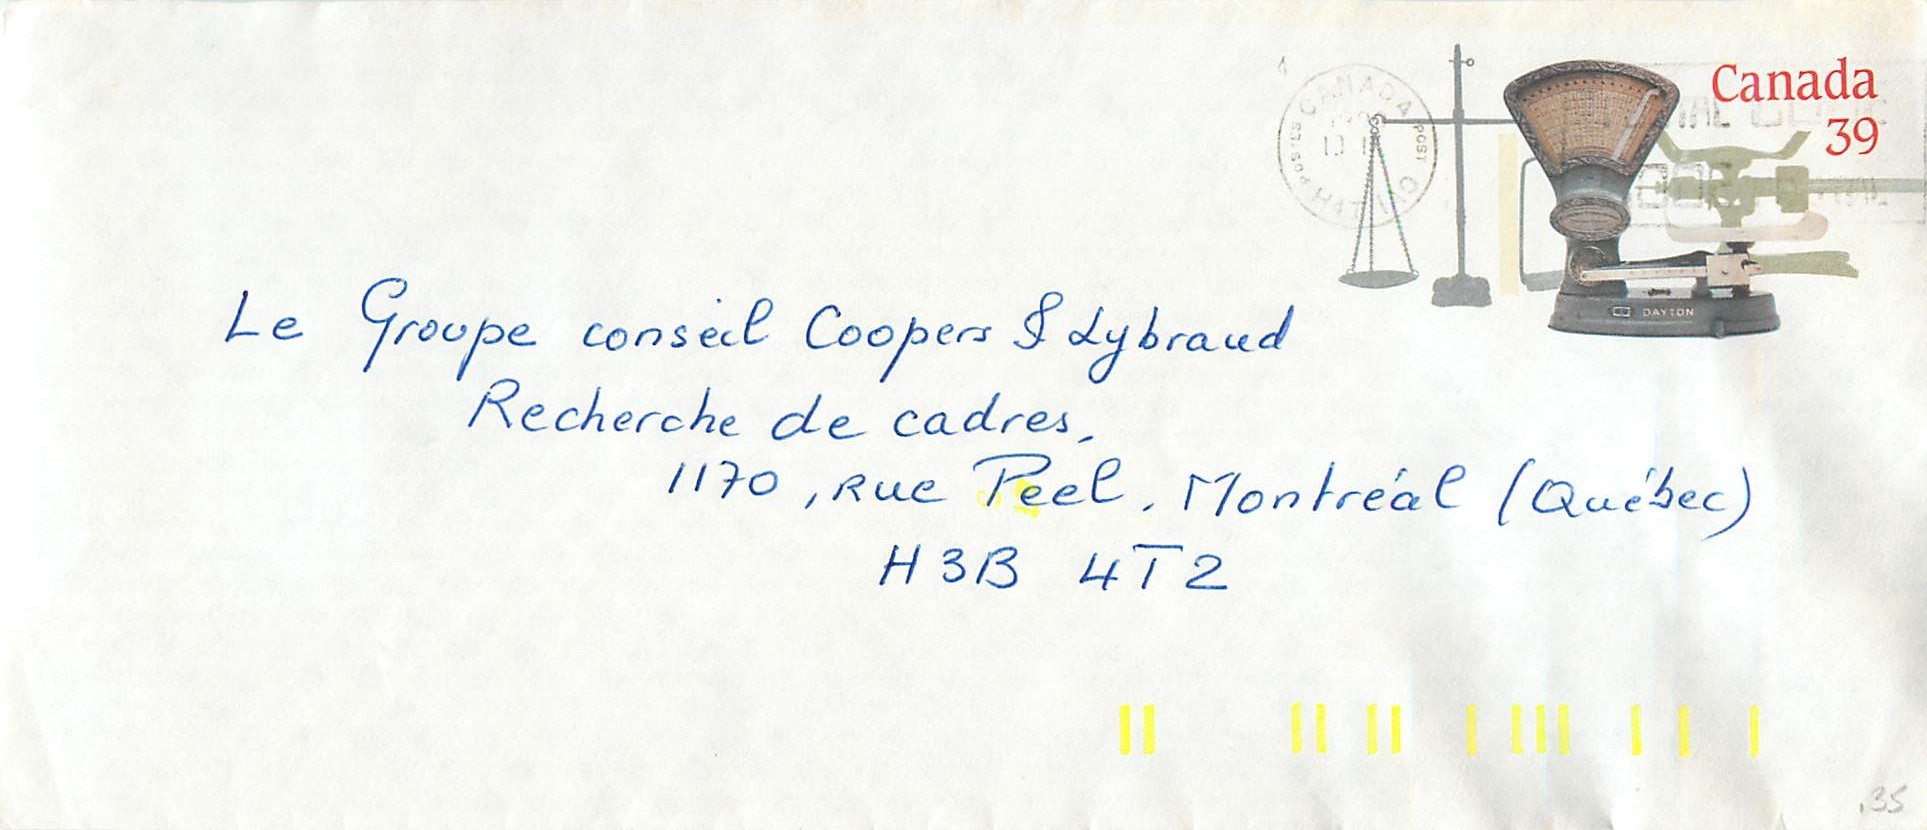 Canada
39
CANADA
POSTES
POST
DAYTON
Le Groupe conseil Coopers & Lybrand
Recherche de cadres,
1170, rue Peel, Montréal (Québec)
H3B 4T2
.35